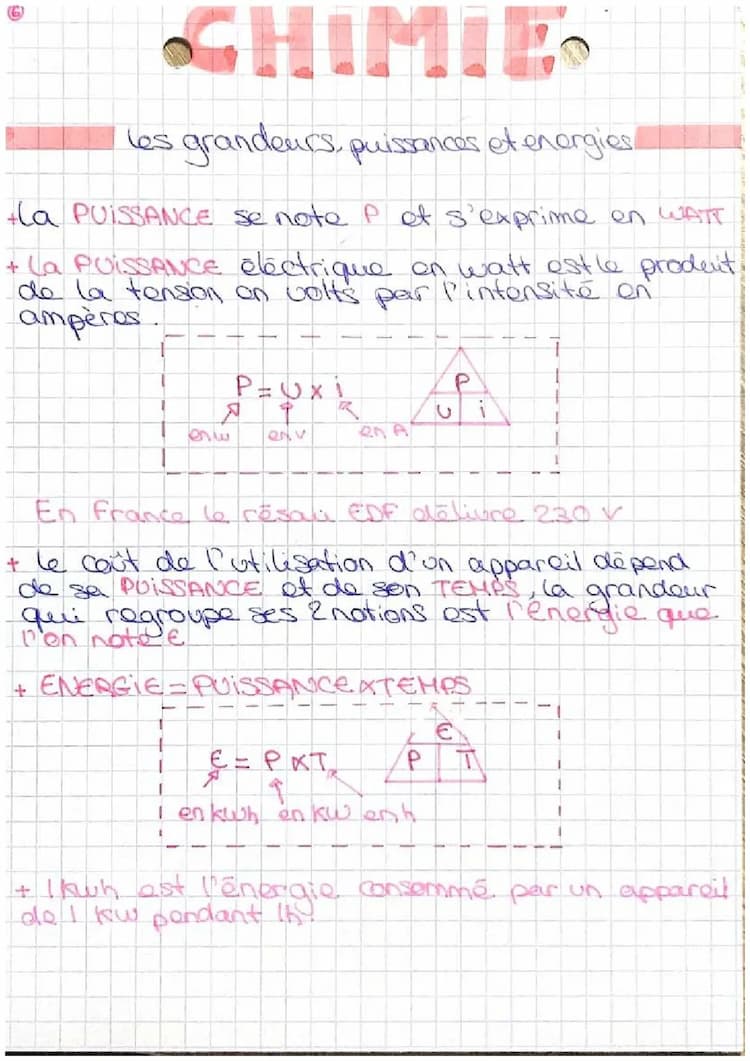 6
CHIMIE
les grandeurs, puissances et energies
+ La PUISSANCE se note P et s'exprime en WATT
+ La PUISSANCE électrique en watt est le produit
de la tension en volts par l'intensité en
ampères.
P = U x i
P
U i
en w en v en A
En France le résau EDF délivre 230 V
+ le coût de l'utilisation d'un appareil dépend
de sa PUISSANCE et de son TEMPS, la grandeur
qui regroupe ses 2 notions est l'énergie que
l'on note E
+ ENERGIE = PUISSANCE x TEMPS
E
E = P x T
P T
en kwh en kw en h
+ 1 kwh est l'énergie consommé par un appareil
de 1 kw pendant 1h.